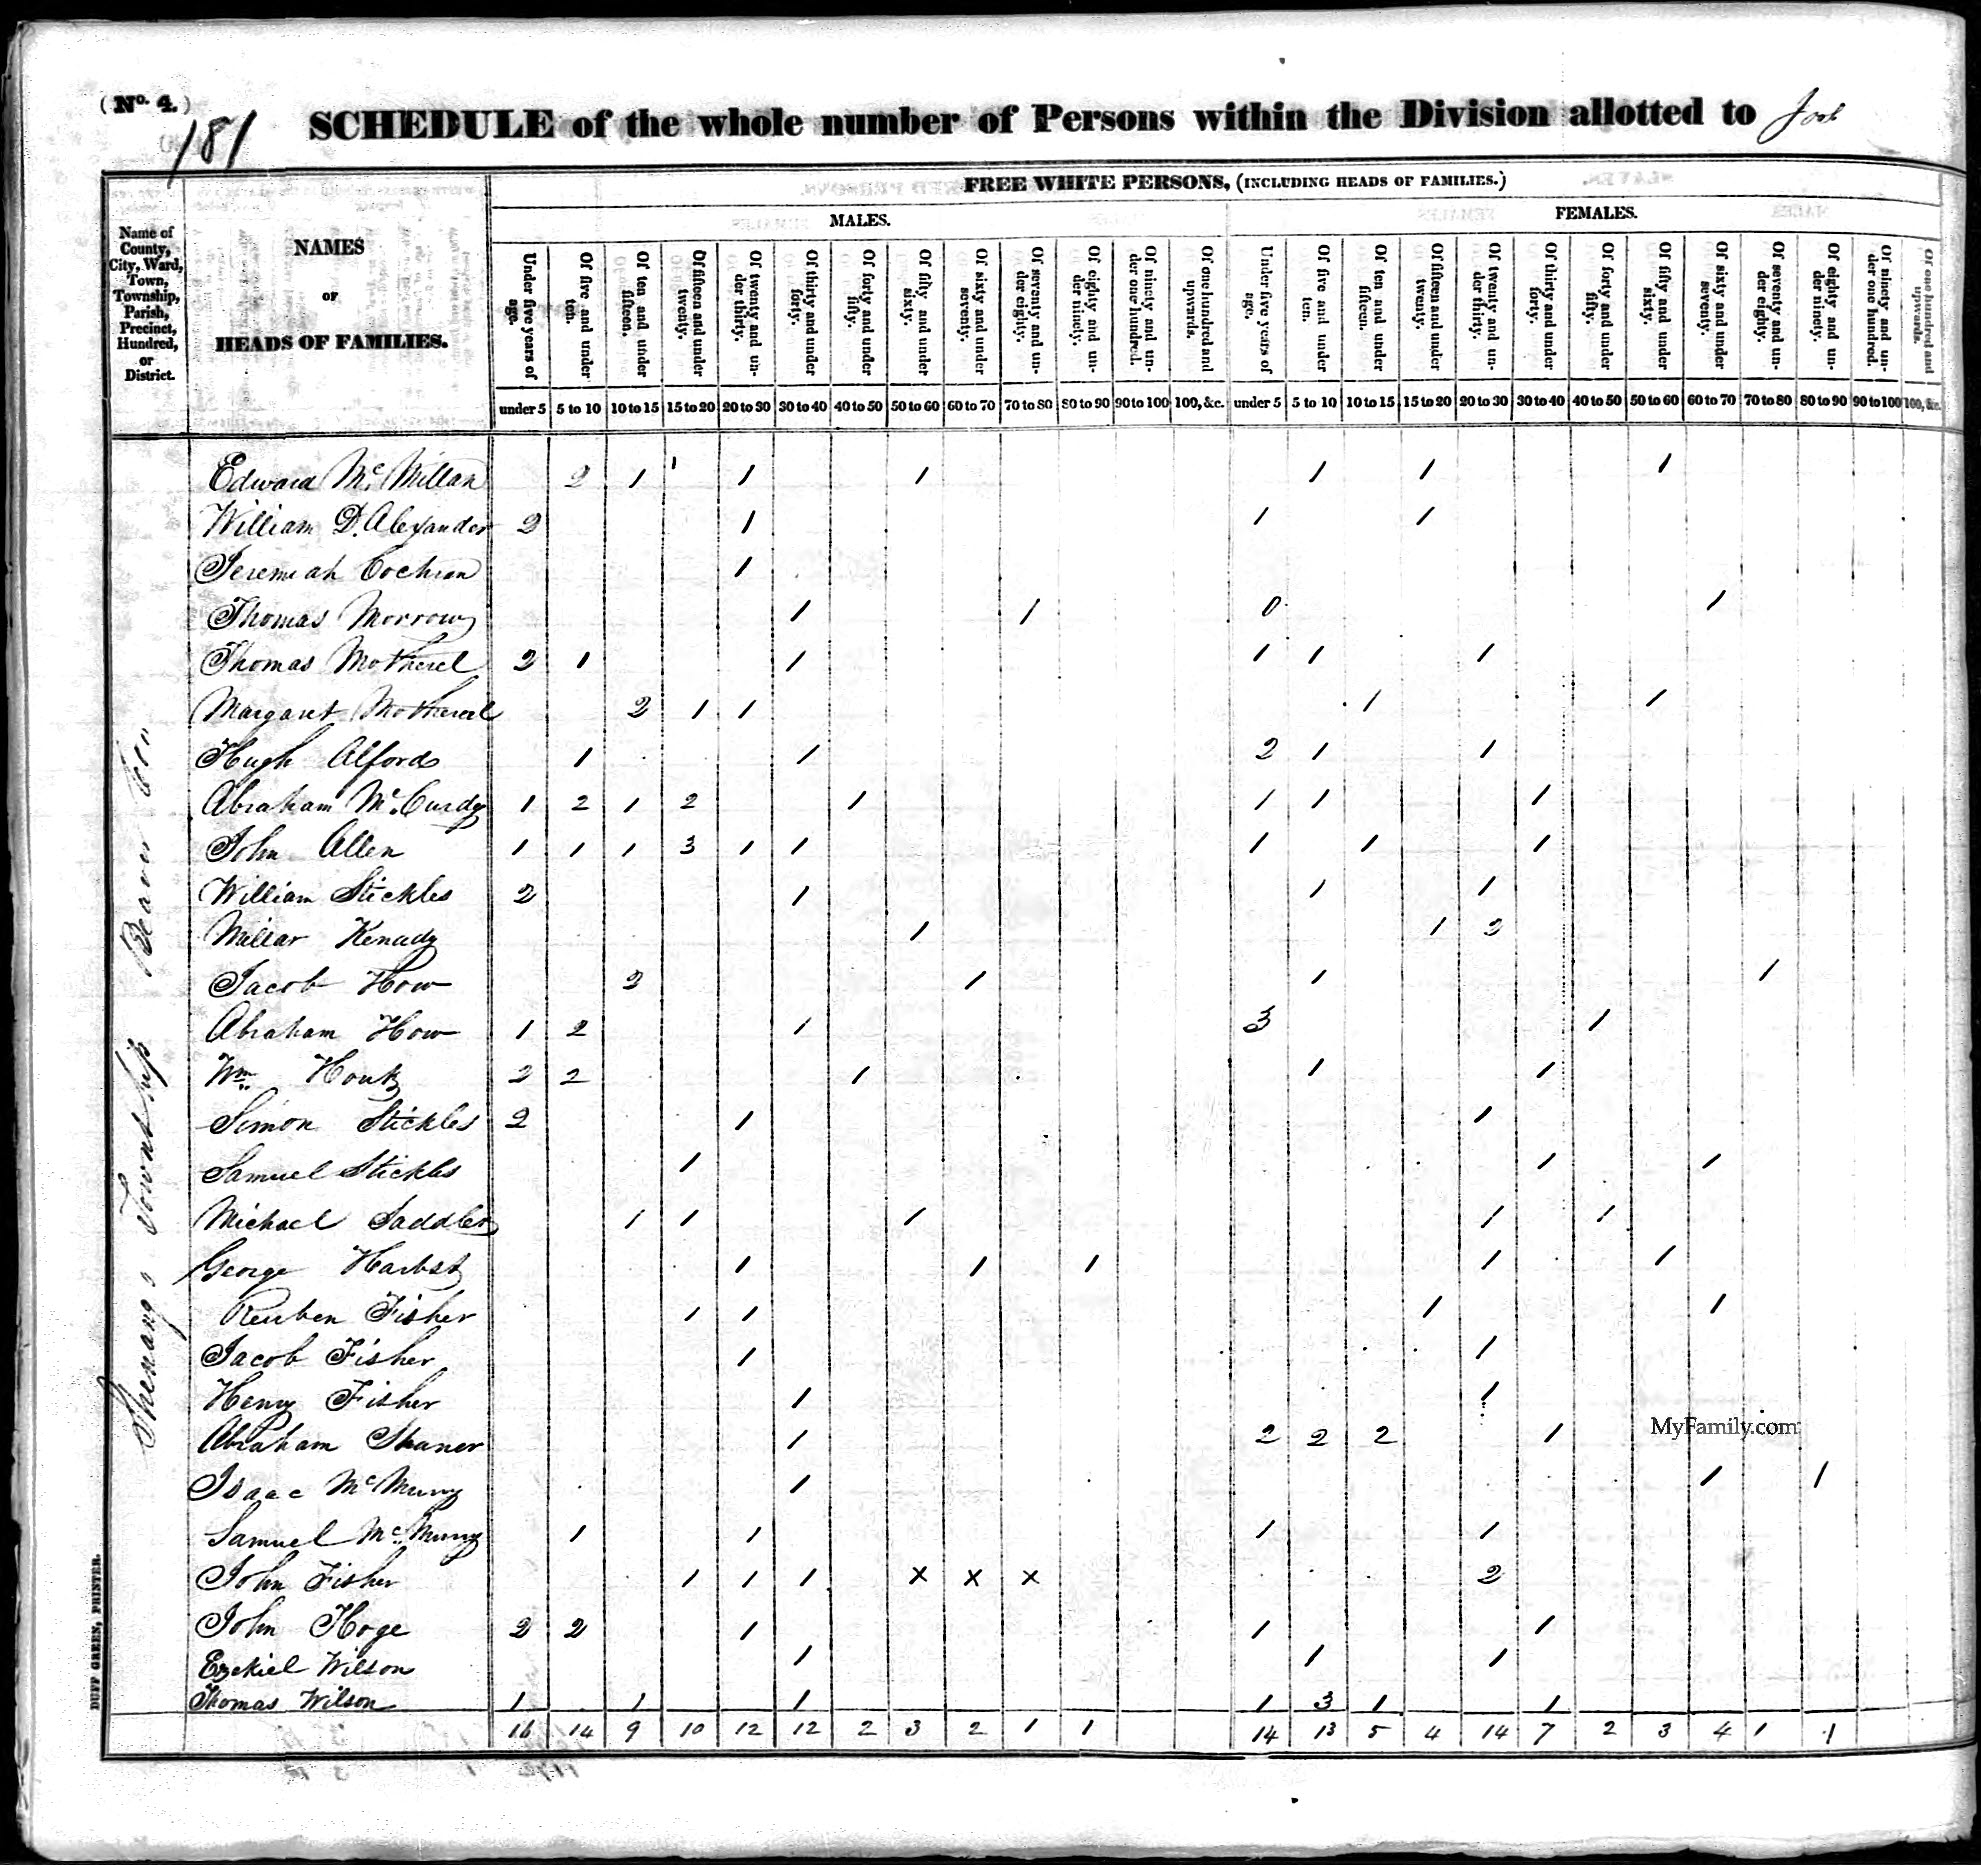 (No. 4.)
181
SCHEDULE of the whole number of Persons within the Division allotted to
FREE WHITE PERSONS, (INCLUDING HEADS OF FAMILIES.)
MALES. FEMALES.
Name of County, City, Ward, Town, Township, Parish, Precinct, Hundred, or District.
NAMES OF HEADS OF FAMILIES.
Under five years of age. Of five and under ten. Of ten and under fifteen. Of fifteen and under twenty. Of twenty and under thirty. Of thirty and under forty. Of forty and under fifty. Of fifty and under sixty. Of sixty and under seventy. Of seventy and under eighty. Of eighty and under ninety. Of ninety and under one hundred. Of one hundred and upwards. Under five years of age. Of five and under ten. Of ten and under fifteen. Of fifteen and under twenty. Of twenty and under thirty. Of thirty and under forty. Of forty and under fifty. Of fifty and under sixty. Of sixty and under seventy. Of seventy and under eighty. Of eighty and under ninety. Of ninety and under one hundred. Of one hundred and upwards.
under 5 5 to 10 10 to 15 15 to 20 20 to 30 30 to 40 40 to 50 50 to 60 60 to 70 70 to 80 80 to 90 90 to 100 100, &c. under 5 5 to 10 10 to 15 15 to 20 20 to 30 30 to 40 40 to 50 50 to 60 60 to 70 70 to 80 80 to 90 90 to 100 100, &c.
Shenango Township Beaver
Edward Mc Millan 2 1 1 1 1 1 1 1
William D. Alexander 2 1 1 1
Jeremiah Cochran 1
Thomas Morrow 1 1 0 1
Thomas Motherel 2 1 1 1 1 1
Margaret Motherel 2 1 1 1 1
Hugh Alford 1 1 2 1 1
Abraham Mc Curdy 1 2 1 2 1 1 1 1
John Allen 1 1 1 3 1 1 1 1 1
William Stickles 2 1 1 1
Millar Kenady 1 1 2
Jacob How 2 1 1 1
Abraham How 1 2 1 3 1
Wm Houk 2 2 1 1 1
Simon Stickles 2 1 1
Samuel Stickles 1 1 1
Michael Saddler 1 1 1 1 1
George Harbst 1 1 1 1 1
Reuben Fisher 1 1 1 1
Jacob Fisher 1 1
Henry Fisher 1 1
Abraham Shaner 1 2 2 2 1
Isaac McMurry 1 1 1
Samuel McMurry 1 1 1 1
John Fisher 1 1 1 x x x 2
John Hoge 2 2 1 1 1
Ezekiel Wilson 1 1 1
Thomas Wilson 1 1 1 1 3 1 1
16 14 9 10 12 12 2 3 2 1 1 14 13 5 4 14 7 2 3 4 1 1
MyFamily.com
DUFF GREEN, PRINTER.